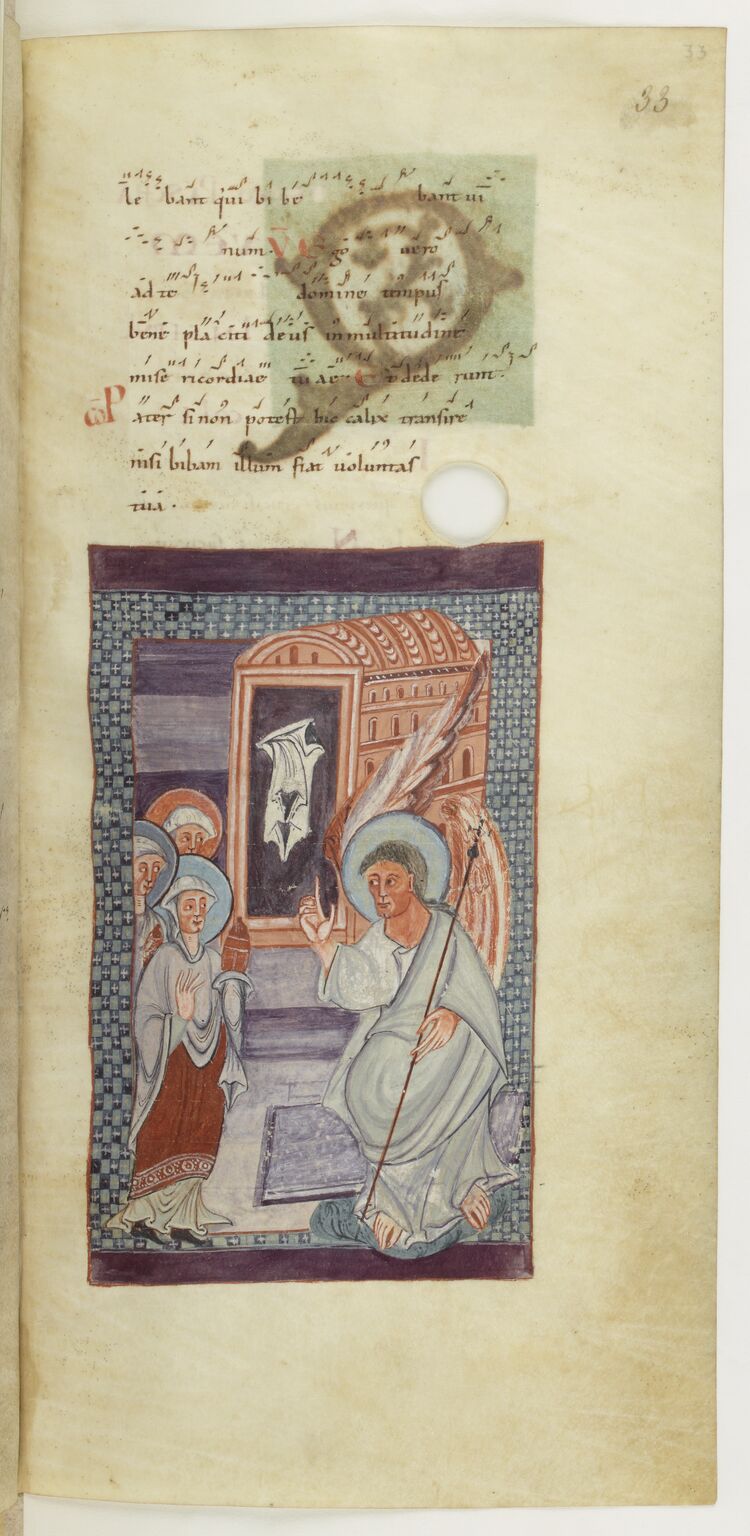 33
33
le bant qui bi be bant ui
num. V Ego uero
ad te domine tempus
bene placiti deus in multitudine
mise ricordiae tuae. Et dede runt.
co Pater si non potest hic calix transire
nisi bibam illum fiat uoluntas
tua.